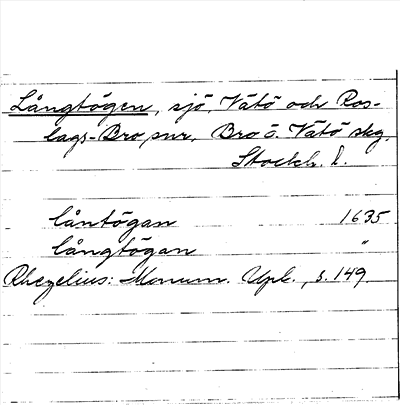 Långtögen, sjö, Vätö och Ros-
lags-Bro snr, Bro o. Vätö skg.
Stockh. l.
låntögan 1635
långtögan "
Rhezelius: Monum. Upl., s. 149.